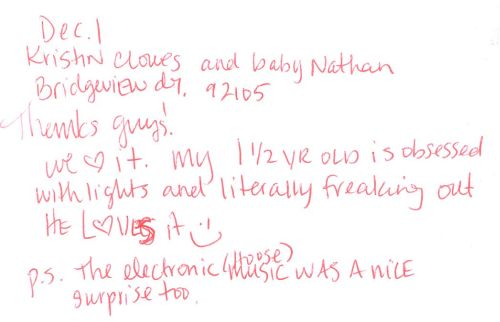 Dec. 1
Kristin Clowes and baby Nathan
Bridgeview dr. 92105
Thanks guys!
we ♡ it. my 1 1/2 YR OLD is obsessed
with lights and literally freaking out
HE L♡VES it :)
p.s. The electronic (House) MUSIC WAS A NICE
surprise too.